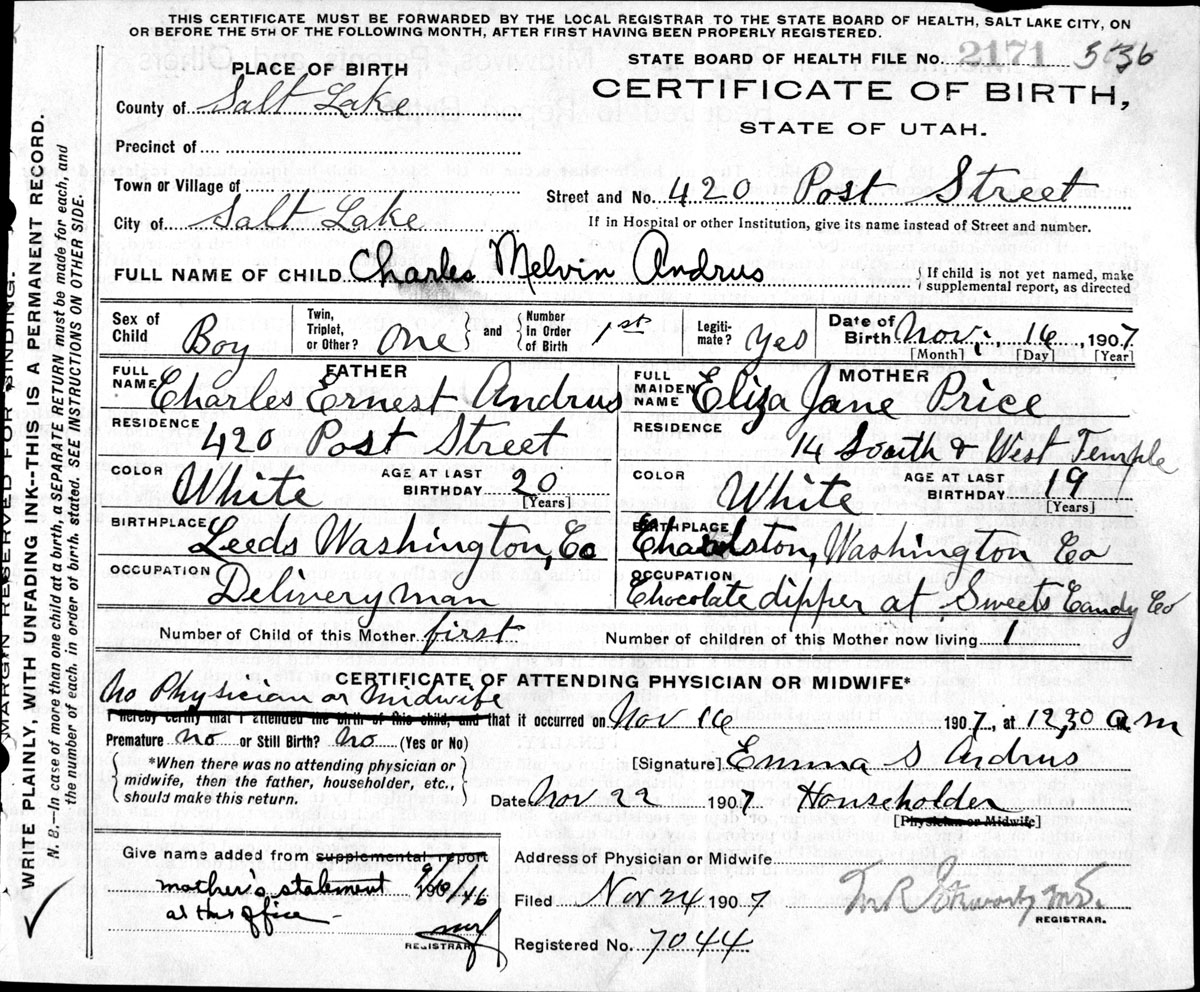 THIS CERTIFICATE MUST BE FORWARDED BY THE LOCAL REGISTRAR TO THE STATE BOARD OF HEALTH, SALT LAKE CITY, ON
OR BEFORE THE 5TH OF THE FOLLOWING MONTH, AFTER FIRST HAVING BEEN PROPERLY REGISTERED.
STATE BOARD OF HEALTH FILE No. 2171 5636
PLACE OF BIRTH
CERTIFICATE OF BIRTH,
STATE OF UTAH.
County of Salt Lake
Precinct of
Town or Village of
Street and No. 420 Post Street
City of Salt Lake
If in Hospital or other Institution, give its name instead of Street and number.
FULL NAME OF CHILD Charles Melvin Andrus
{If child is not yet named, make
supplemental report, as directed
Sex of Child Boy
Twin, Triplet, or Other? One } and { Number in Order of Birth 1st
Legiti-mate? Yes
Date of Birth Nov. 16, 1907
[Month] [Day] [Year]
FATHER
FULL NAME Charles Ernest Andrus
MOTHER
FULL MAIDEN NAME Eliza Jane Price
RESIDENCE 420 Post Street
RESIDENCE 14 South & West Temple
COLOR White AGE AT LAST BIRTHDAY 20 [Years]
COLOR White AGE AT LAST BIRTHDAY 19 [Years]
BIRTHPLACE Leeds Washington, Co
BIRTHPLACE Washington Co
OCCUPATION Deliveryman
OCCUPATION Chocolate dipper at Sweets Candy Co
Number of Child of this Mother first
Number of children of this Mother now living 1
CERTIFICATE OF ATTENDING PHYSICIAN OR MIDWIFE*
No Physician or Midwife
I hereby certify that I attended the birth of this child, and that it occurred on Nov 16 1907, at 12,30 a.m
Premature no or Still Birth? No (Yes or No)
{*When there was no attending physician or
midwife, then the father, householder, etc.,
should make this return.}
[Signature] Emma S Andrus
Date Nov 22 1907 Householder
[Physician or Midwife]
Give name added from supplemental report
mother's statement
at this office
REGISTRAR
Address of Physician or Midwife
Filed Nov 24 1907
REGISTRAR.
Registered No. 7044
MARGIN RESERVED FOR BINDING.
WRITE PLAINLY, WITH UNFADING INK--THIS IS A PERMANENT RECORD.
N. B.—In case of more than one child at a birth, a SEPARATE RETURN must be made for each, and
the number of each, in order of birth, stated. SEE INSTRUCTIONS ON OTHER SIDE.